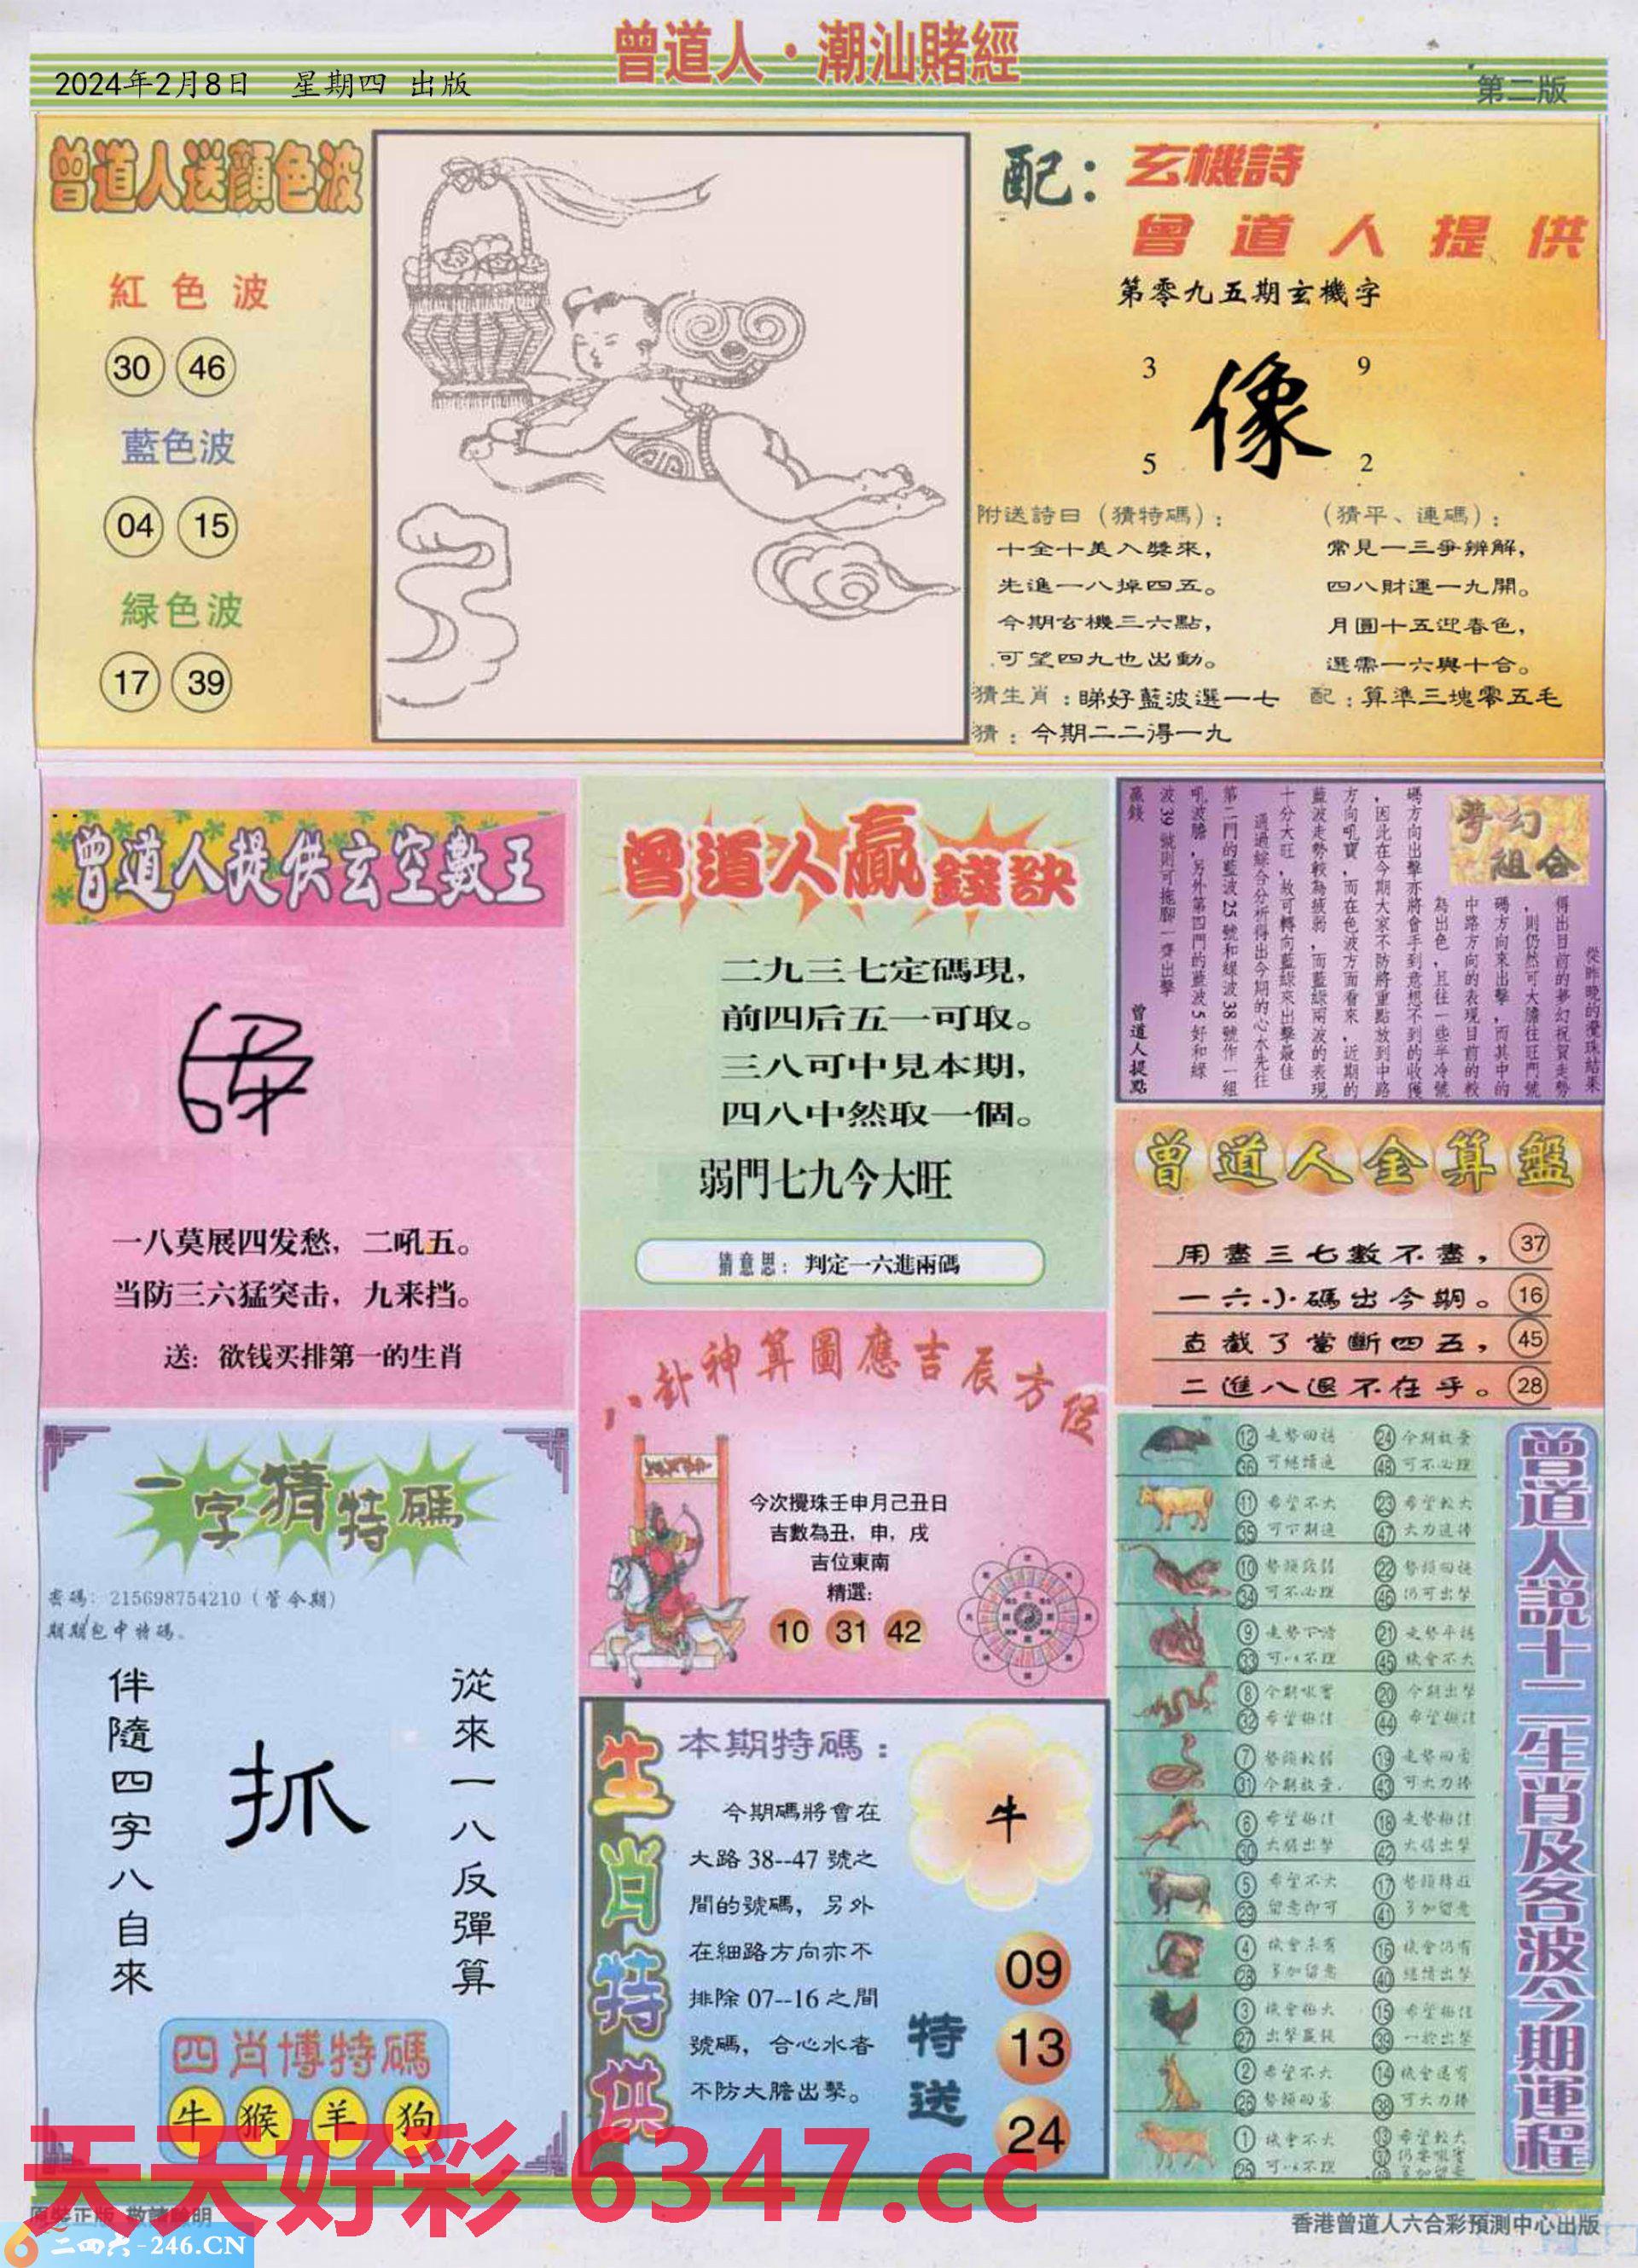 曾道人·潮汕賭經
2024年2月8日 星期四 出版
第二版
曾道人送顏色波
紅色波
30 46
藍色波
04 15
緑色波
17 39
配：玄機詩
曾道人提供
第零九五期玄機字
3 9
像
5 2
附送詩曰（猜特碼）：
十全十美入獎來，
先進一八掉四五。
今期玄機三六點，
可望四九也出動。
（猜平、連碼）：
常見一三爭辨解，
四八財運一九開。
月圓十五迎春色，
選需一六與十合。
猜生肖：睇好藍波選一七
配：算準三塊零五毛
猜：今期二二得一九
曾道人提供玄空數王
一八莫展四发愁，二吼五。
当防三六猛突击，九来挡。
送：欲钱买排第一的生肖
曾道人贏錢訣
二九三七定碼現，
前四后五一可取。
三八可中見本期，
四八中然取一個。
弱門七九今大旺
猜意思：判定一六進兩碼
夢幻
組合
從昨晚的攪珠結果
得出目前的夢幻祝賀走勢
，則仍然可大膽往旺門號
碼方向來出擊，而其中的
中路方向的表現目前的較
為出色，且往一些半冷號
碼方向出擊亦將會手到意想不到的收獲
，因此在今期大家不防將重點放到中路
方向吼寶，而在色波方面看來，近期的
藍波走勢較為疲弱，而藍綠兩波的表現
十分大旺，故可轉向藍綠來出擊最佳
通過綜合分析得出今期的心水先往
第二門的藍波25號和綠波38號作一組
吼波膽，另外第四門的藍波5好和綠
波39號則可拖腳一齊出擊
贏錢
曾道人提點
曾道人金算盤
用盡三七數不盡， 37
一六小碼出今期。 16
直截了當斷四五， 45
二進八退不在乎。 28
八卦神算圖應吉辰方位
今次攪珠壬申月己丑日
吉數為丑，申，戌
吉位東南
精選:
10 31 42
一字猜特碼
密碼：215698754210（管今期）
期期包中特碼。
從來一八反彈算
抓
伴隨四字八自來
四肖博特碼
牛 猴 羊 狗
生肖特供
本期特碼：
今期碼將會在
大路38--47號之
間的號碼，另外
在細路方向亦不
排除07--16之間
號碼，合心水者
不防大膽出擊。
牛
特送
09
13
24
曾道人説十二生肖及各波今期運程
12 走勢回穩 24 今期放棄
36 可繼續追 48 可不必理
11 希望不大 23 希望較大
35 可下期追 47 大力追捧
10 勢頭致弱 22 勢頭回穩
34 可不必理 46 仍可出擊
9 走勢下滑 21 走勢平穩
33 可以不理 45 機會不大
8 今期吼實 20 今期出擊
32 希望極佳 44 希望極佳
7 勢頭較弱 19 走勢回雷
31 今期放棄. 43 可大力捧
6 希望極佳 18 走勢極佳
30 大膽出擊 42 大膽出擊
5 希望不大 17 勢頭轉旺
29 留意即可 41 多加留意
4 機會未有 16 機會仍有
28 多加留意 40 繼情出擊
3 機會極大 15 希望極佳
27 出擊贏錢 39 一於出擊
2 希望不大 14 機會還有
26 勢頭回雷 38 可大力捧
1 機會不大 13 希望較大
25 可以不理
天天好彩 6347.cc
原裝正版 敬請驗明
二四六-246.CN
香港曾道人六合彩預測中心出版